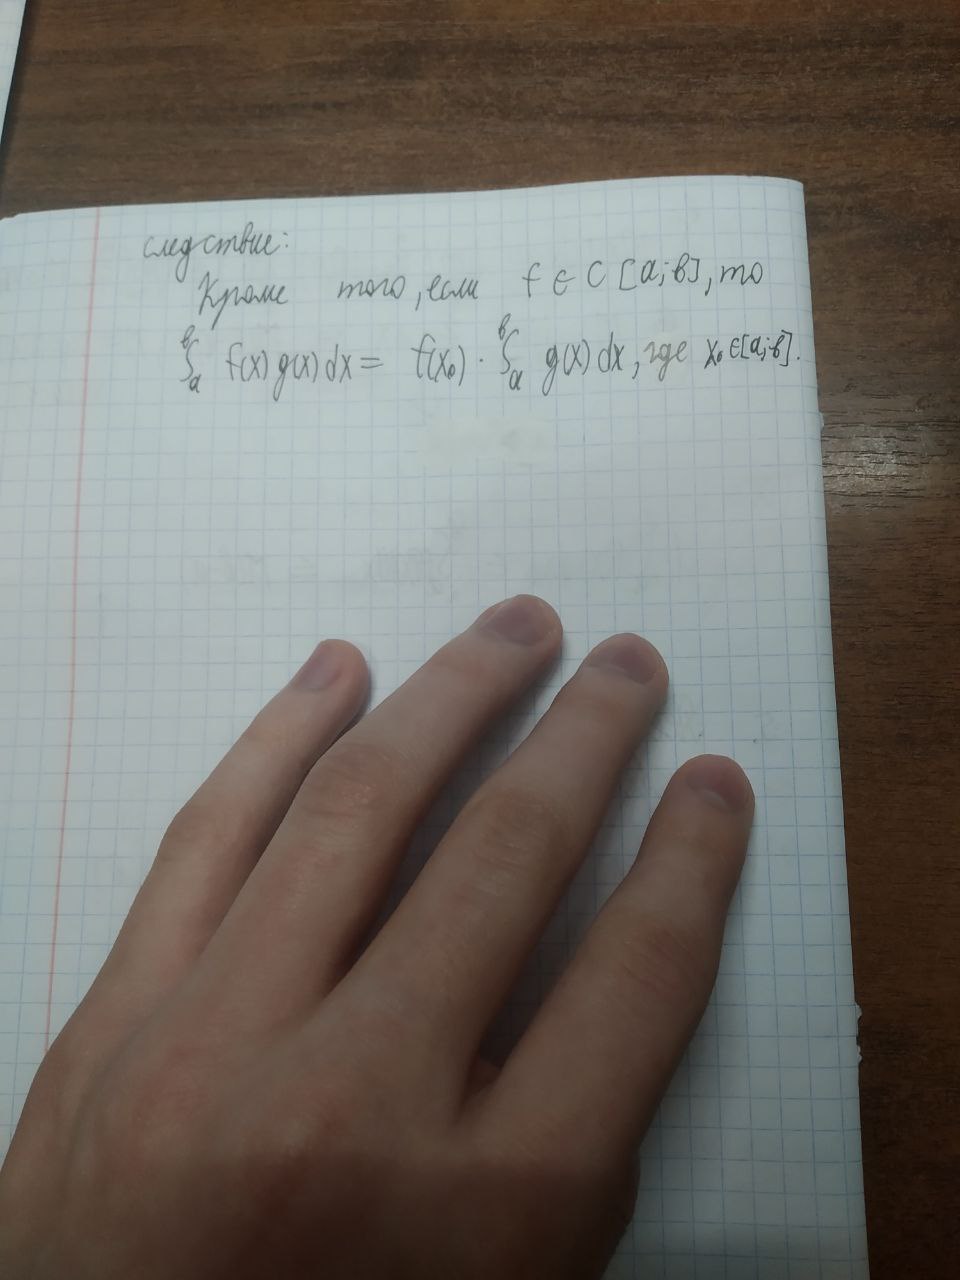 следствие:
Кроме того, если f ∈ C [a;b], то
∫ₐᵇ f(x) g(x) dx = f(x₀) · ∫ₐᵇ g(x) dx, где x₀ ∈ [a;b].